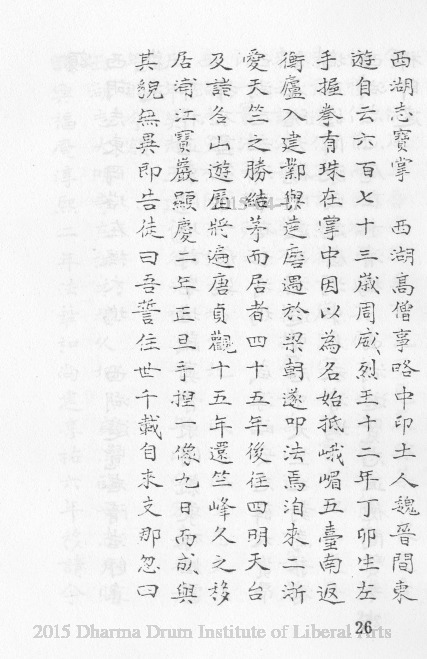 西湖志寶掌　西湖高僧事略中印土人魏晉間東
遊自云六百七十三歲周威烈王十二年丁卯生左
手握拳有珠在掌中因以為名始抵峨嵋五臺南返
衡廬入建鄴與達磨遇於梁朝遂叩法焉洎來二浙
愛天竺之勝結茅而居者四十五年後往四明天台
及諸名山遊歷將遍唐貞觀十五年還竺峰久之移
居浦江寶嚴顯慶二年正旦手揑一像九日而成與
其貌無異即告徒曰吾誓住世千載自來支那忽曰
26
2015 Dharma Drum Institute of Liberal Arts